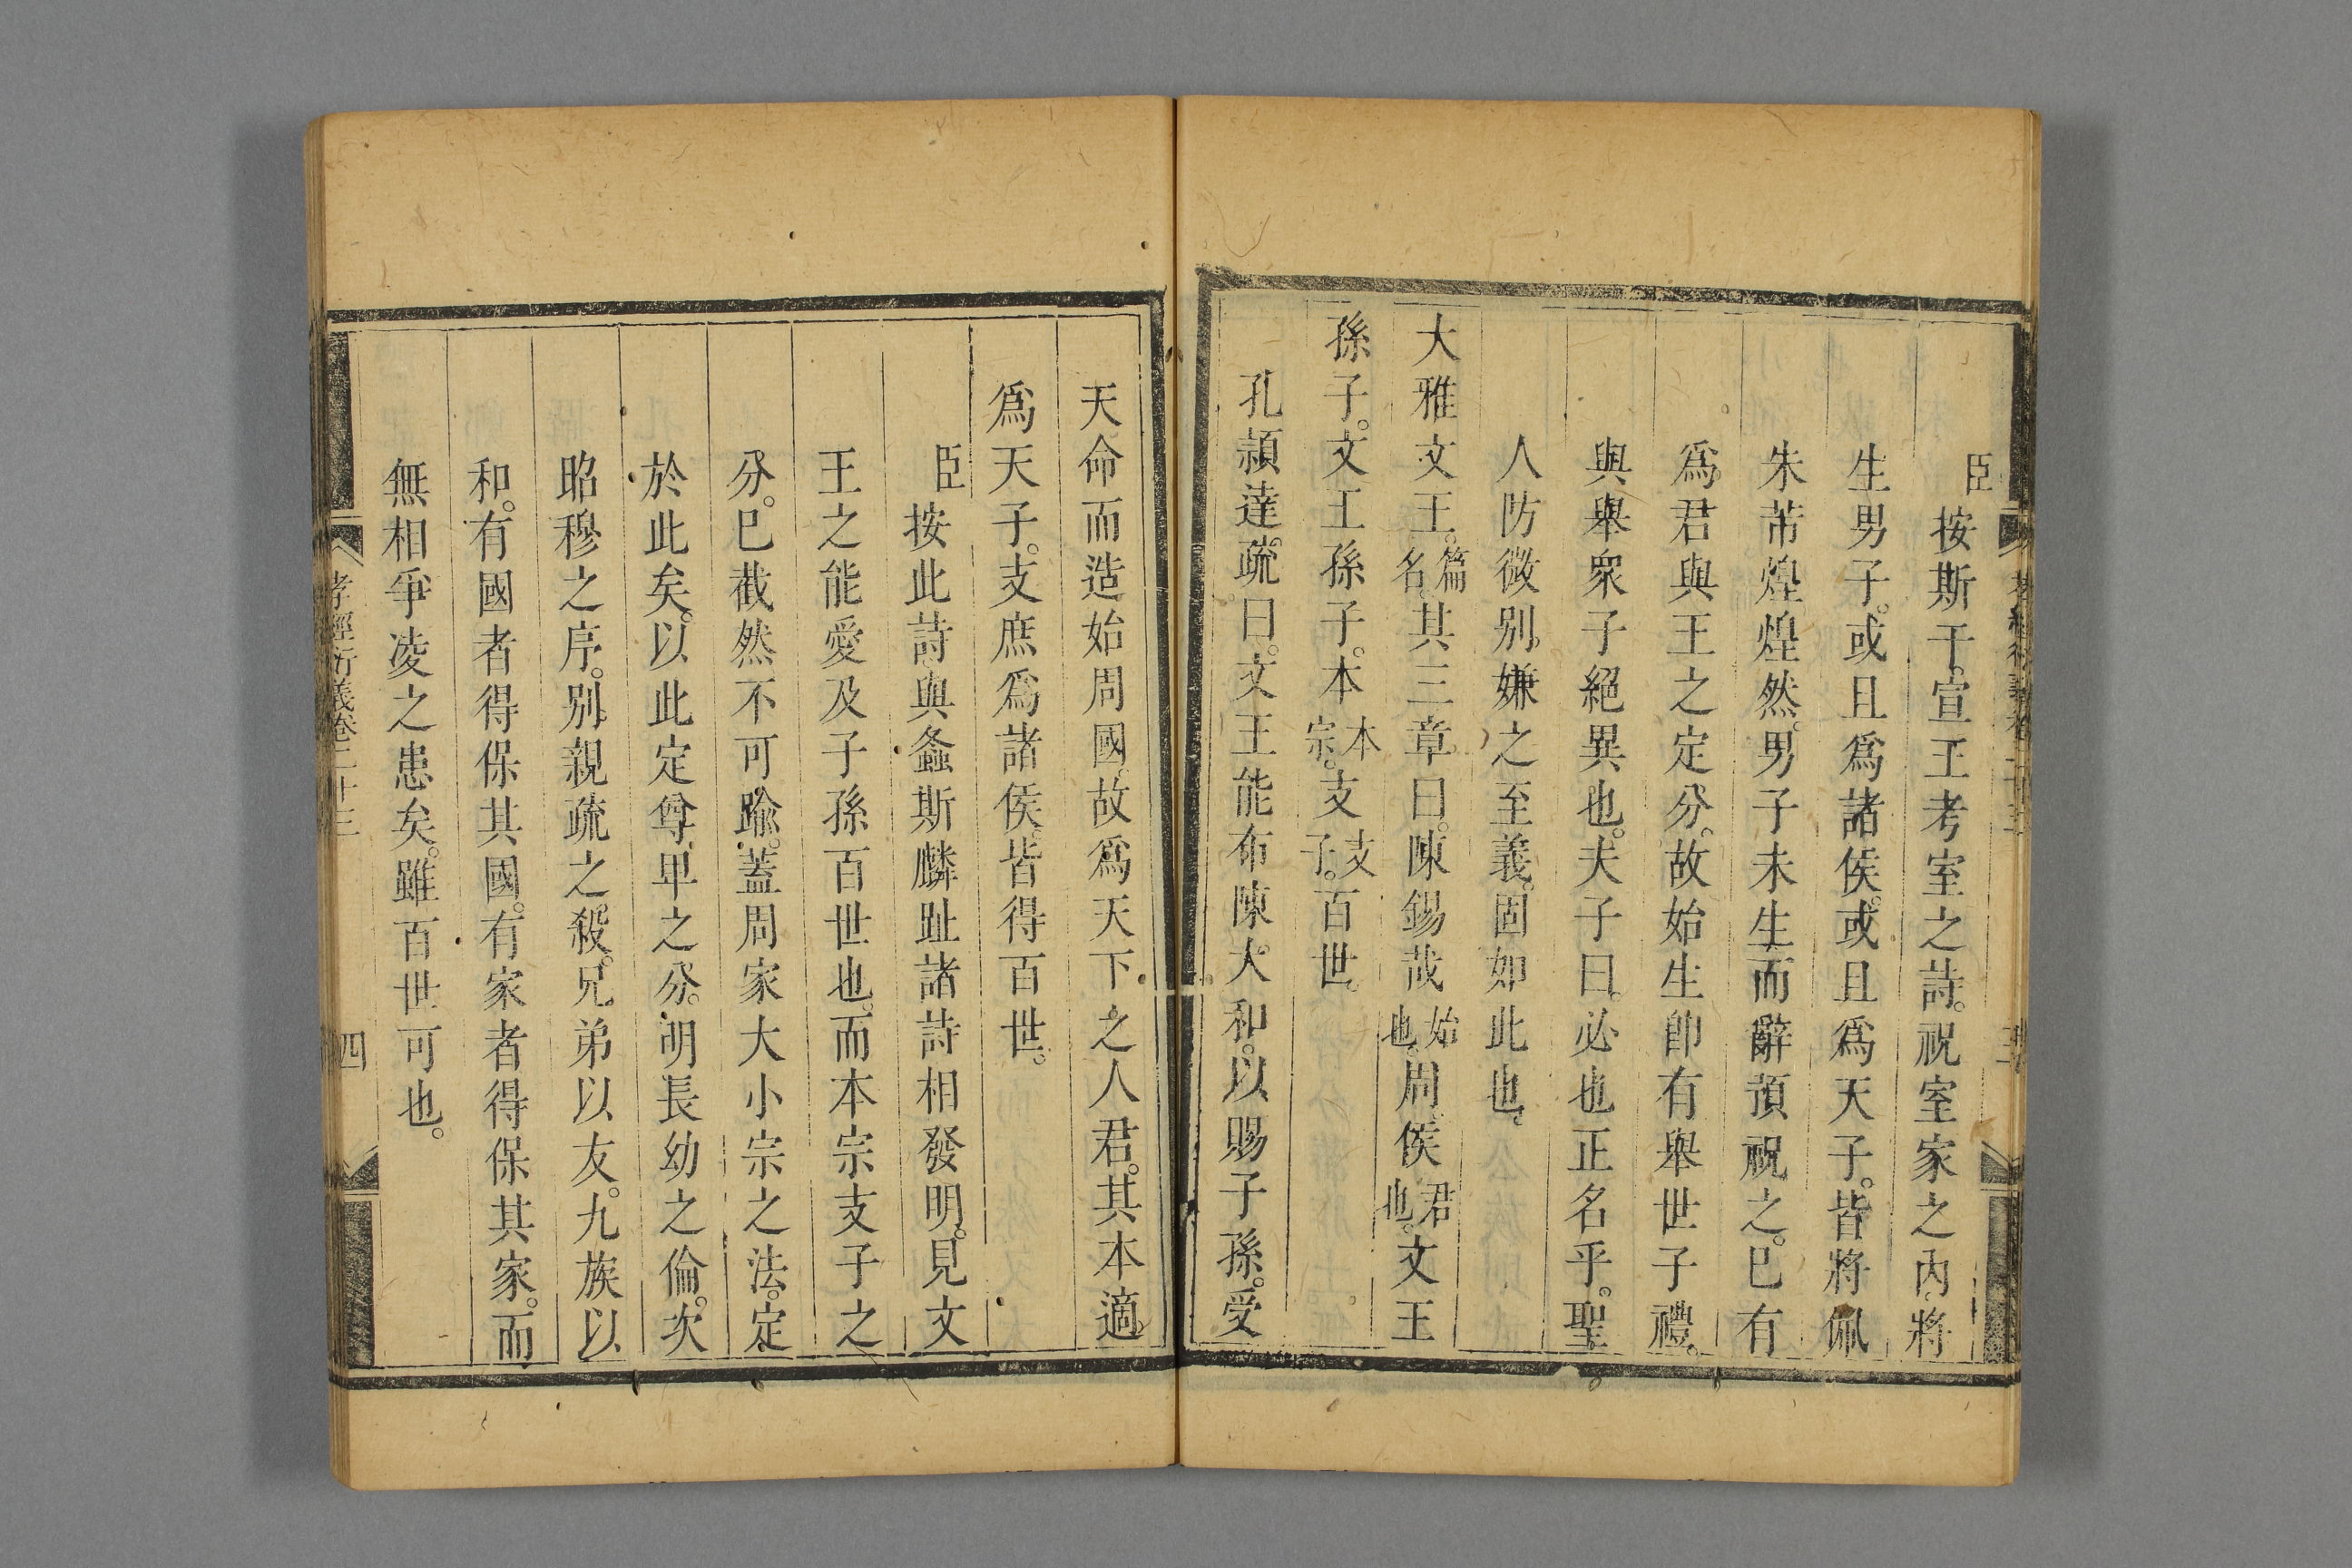 臣按斯干。宣王考室之詩。祝室家之內。將
生男子。或且爲諸侯。或且爲天子。皆將佩
朱芾煌煌然。男子未生而辭預祝之。已有
爲君與王之定分。故始生卽有舉世子禮。
與舉衆子絕異也。夫子曰。必也正名乎。聖
人防微別嫌之至義。固如此也。
大雅文王。篇名。其三章曰。陳錫哉始也。周侯君也。文王
孫子。文王孫子。本本宗。支支子。百世。
孔頴達疏曰。文王能布陳大和。以賜子孫。受
天命而造始周國。故爲天下之人君。其本適
爲天子。支庶爲諸侯。皆得百世。
臣按此詩與螽斯麟趾諸詩相發明。見文
王之能愛及子孫百世也。而本宗支子之
分。已截然不可踰。蓋周家大小宗之法。定
於此矣。以此定尊卑之分。明長幼之倫。次
昭穆之序。別親疏之殺。兄弟以友。九族以
和。有國者得保其國。有家者得保其家。而
無相爭凌之患矣。雖百世可也。
孝經衍義卷二十三
四